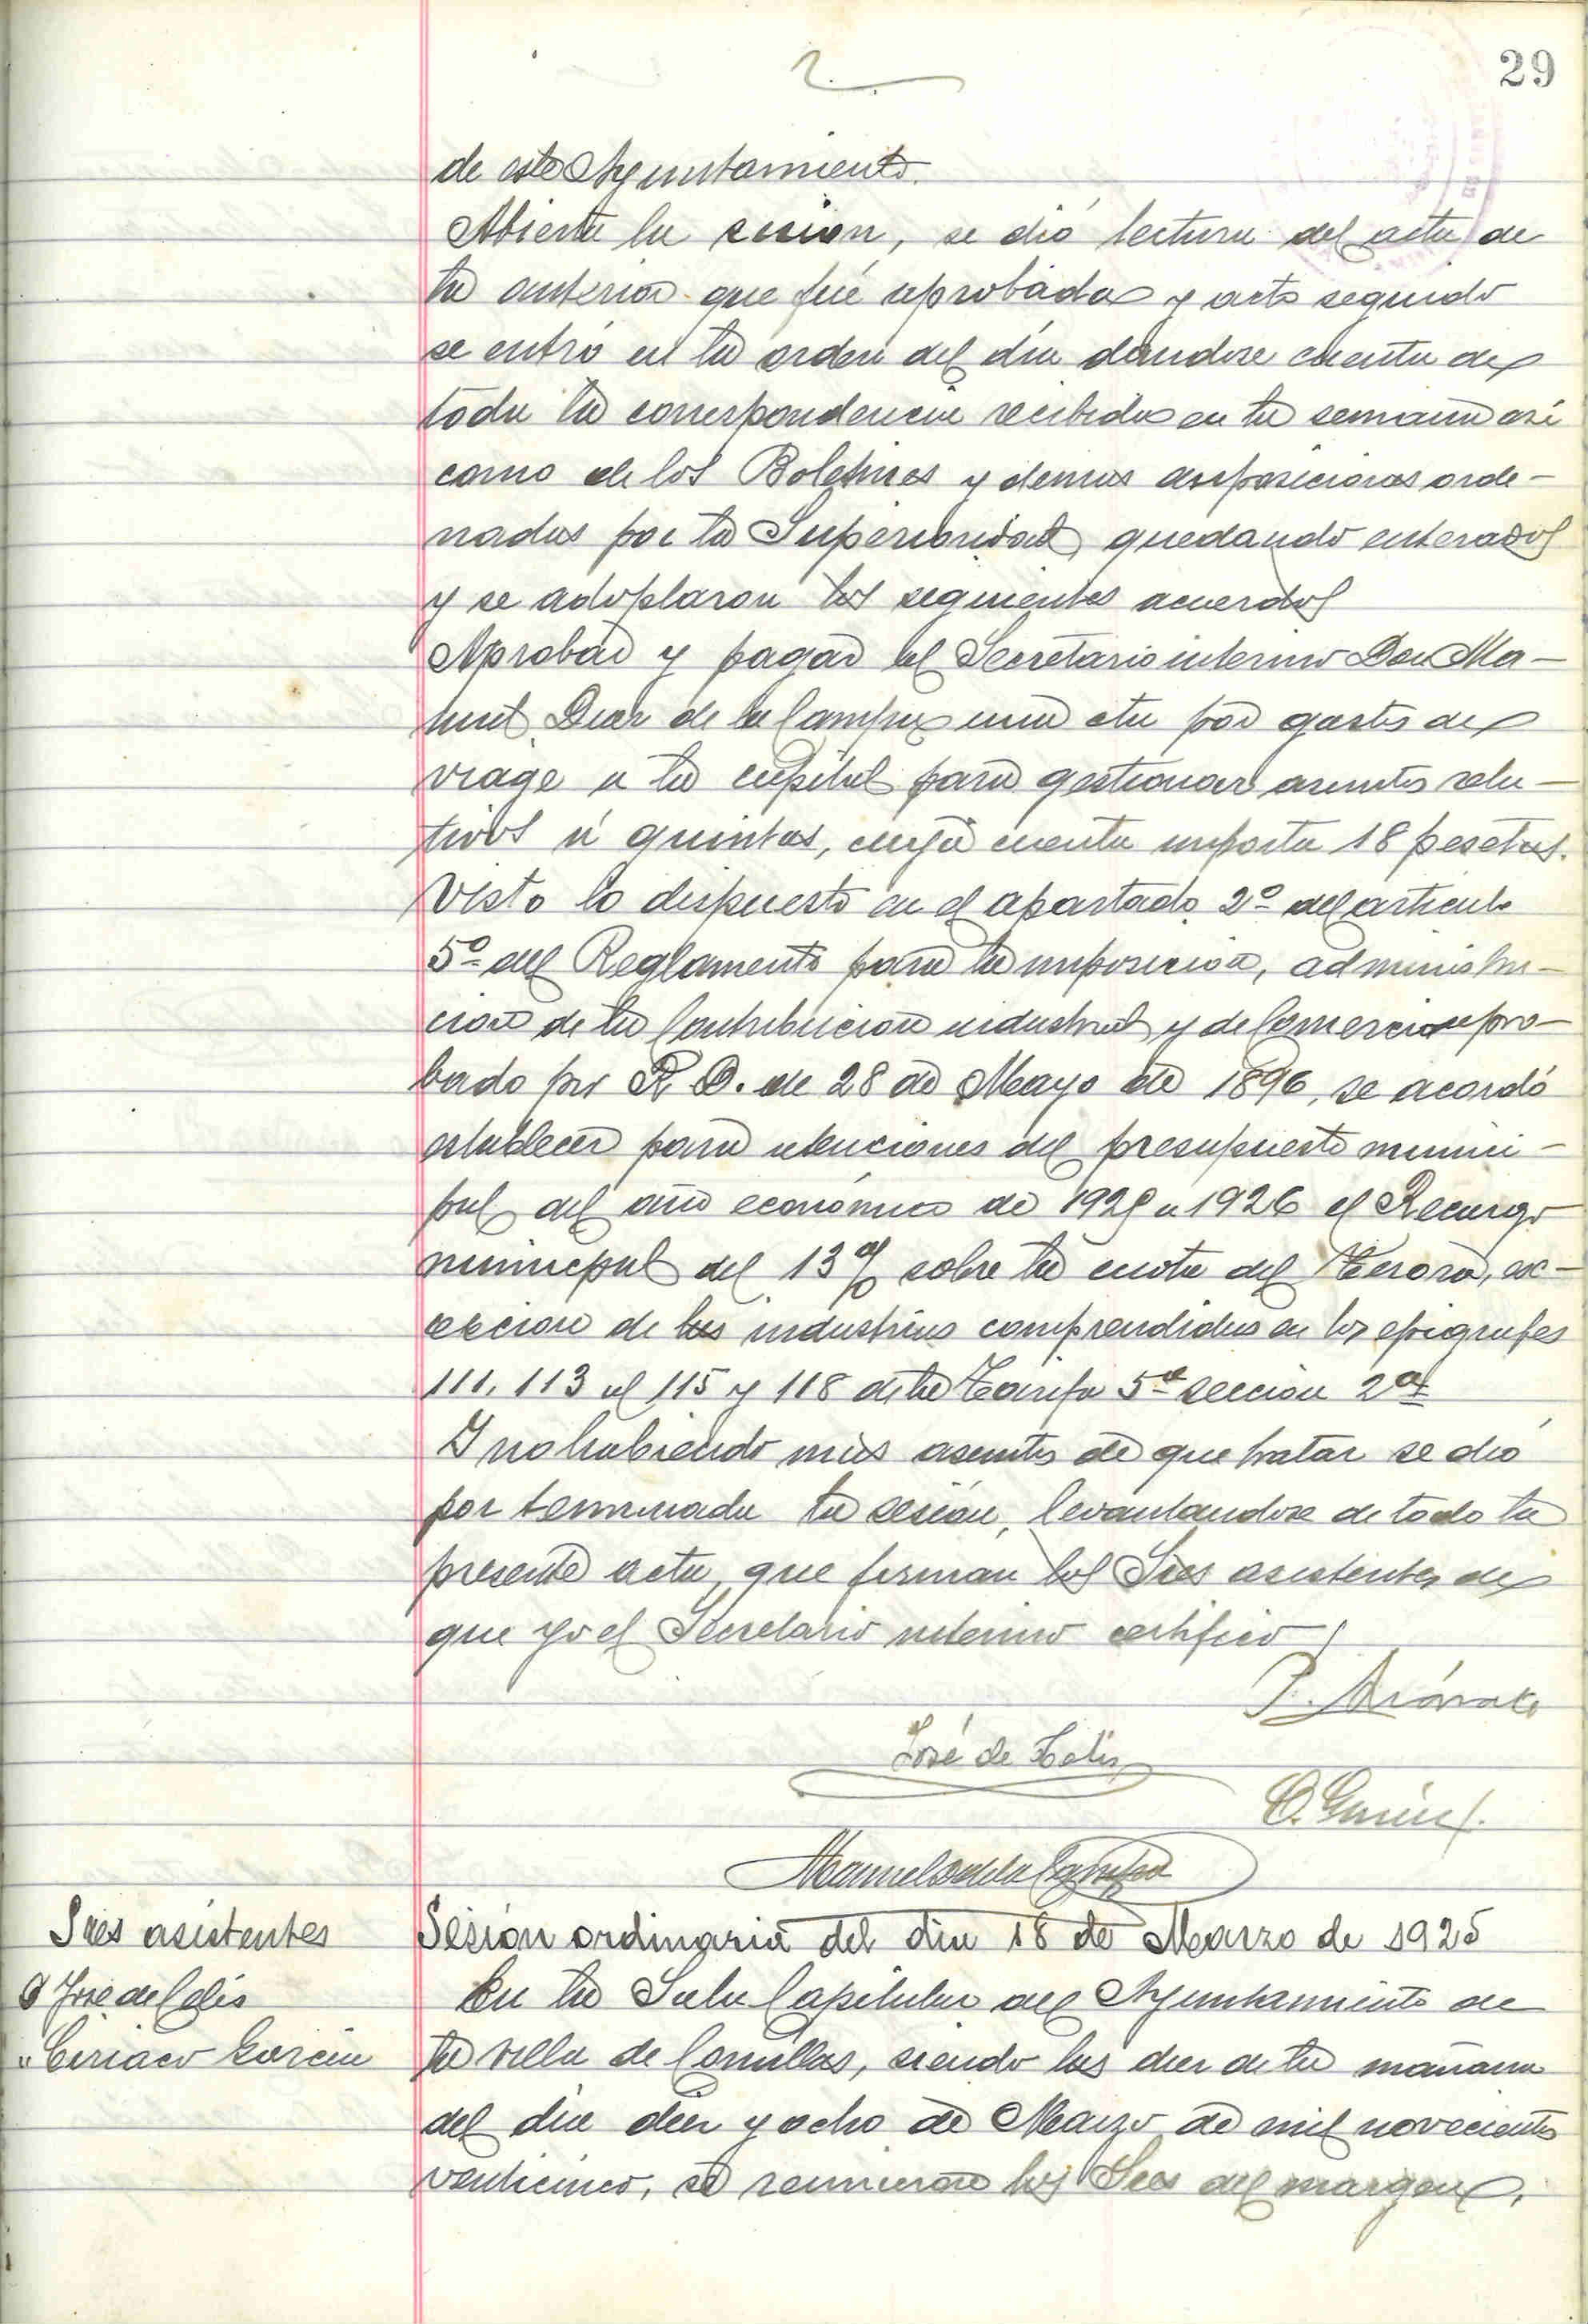 29
de este Ayuntamiento.
Abierta la sesion, se dió lectura del acta de
la anterior que fué aprobada y acto seguido
se entró en la orden del día dandose cuenta de
toda la correspondencia recibida en la semana asi
como de los Boletines y demas disposiciones orde-
nadas por la Superioridad, quedando enterados
y se adoptaron los seguientes acuerdos
Aprobar y pagar al Secretario interino Don Ma-
nuel Diaz de la Campa una cta por gastos de
viage a la capital para gestionar asuntos rela-
tivos á quintas, cuya cuenta importa 18 pesetas.
Visto lo dispuesto en el apartado 2º del articulo
5º del Reglamento para la imposicion, administra-
cion de la Contribucion industrial y de Comercio apro-
bado por R. D. de 28 de Mayo de 1896, se acordó
establecer para atenciones del presupuesto munici-
pal del año económico de 1925 a 1926 el Recargo
municipal del 13 % sobre la cuota del Tesoro, ex-
cepcion de las industrias comprendidas en los epigrafes
111, 113 al 115 y 118 de la Tarifa 5ª seccion 2ª
Y no habiendo mas asuntos de que tratar se dió
por terminada la sesión, levantandose de todo la
presente acta, que firman los Sres asistentes de
que yo el Secretario interino certifico
José de Celis
C. García
Manuel D. de la Campa
Sres asistentes
D José de Celis
" Ciriaco Garcia
Sesion ordinaria del dia 18 de Marzo de 1925
En la Sala Capitular del Ayuntamiento de
la villa de Comillas, siendo las diez de la mañana
del dia diez y ocho de Marzo de mil novecientos
venticinco, se reunieron los Sres del margen,